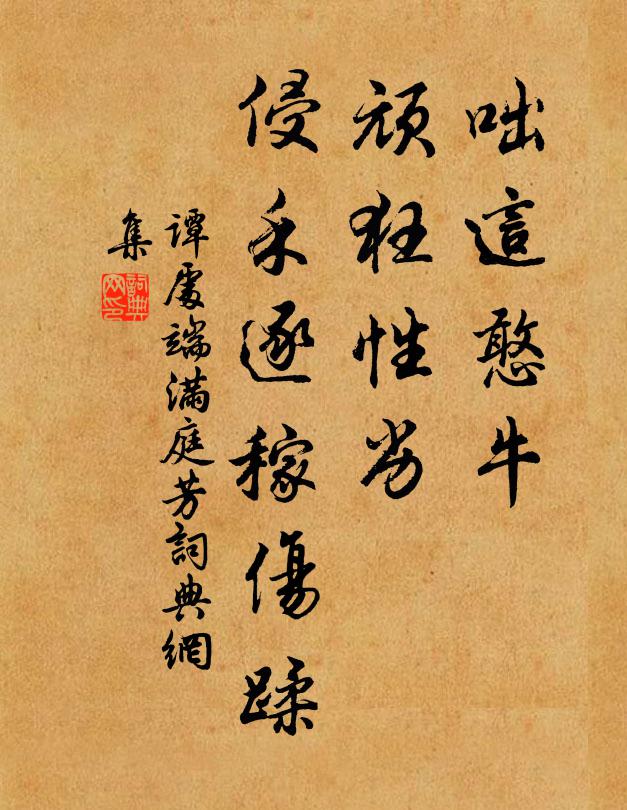 咄這憨牛
頑狂性劣
侵禾逐稼傷蹂
譚處端滿庭芳詞典網
集
詞典
网印